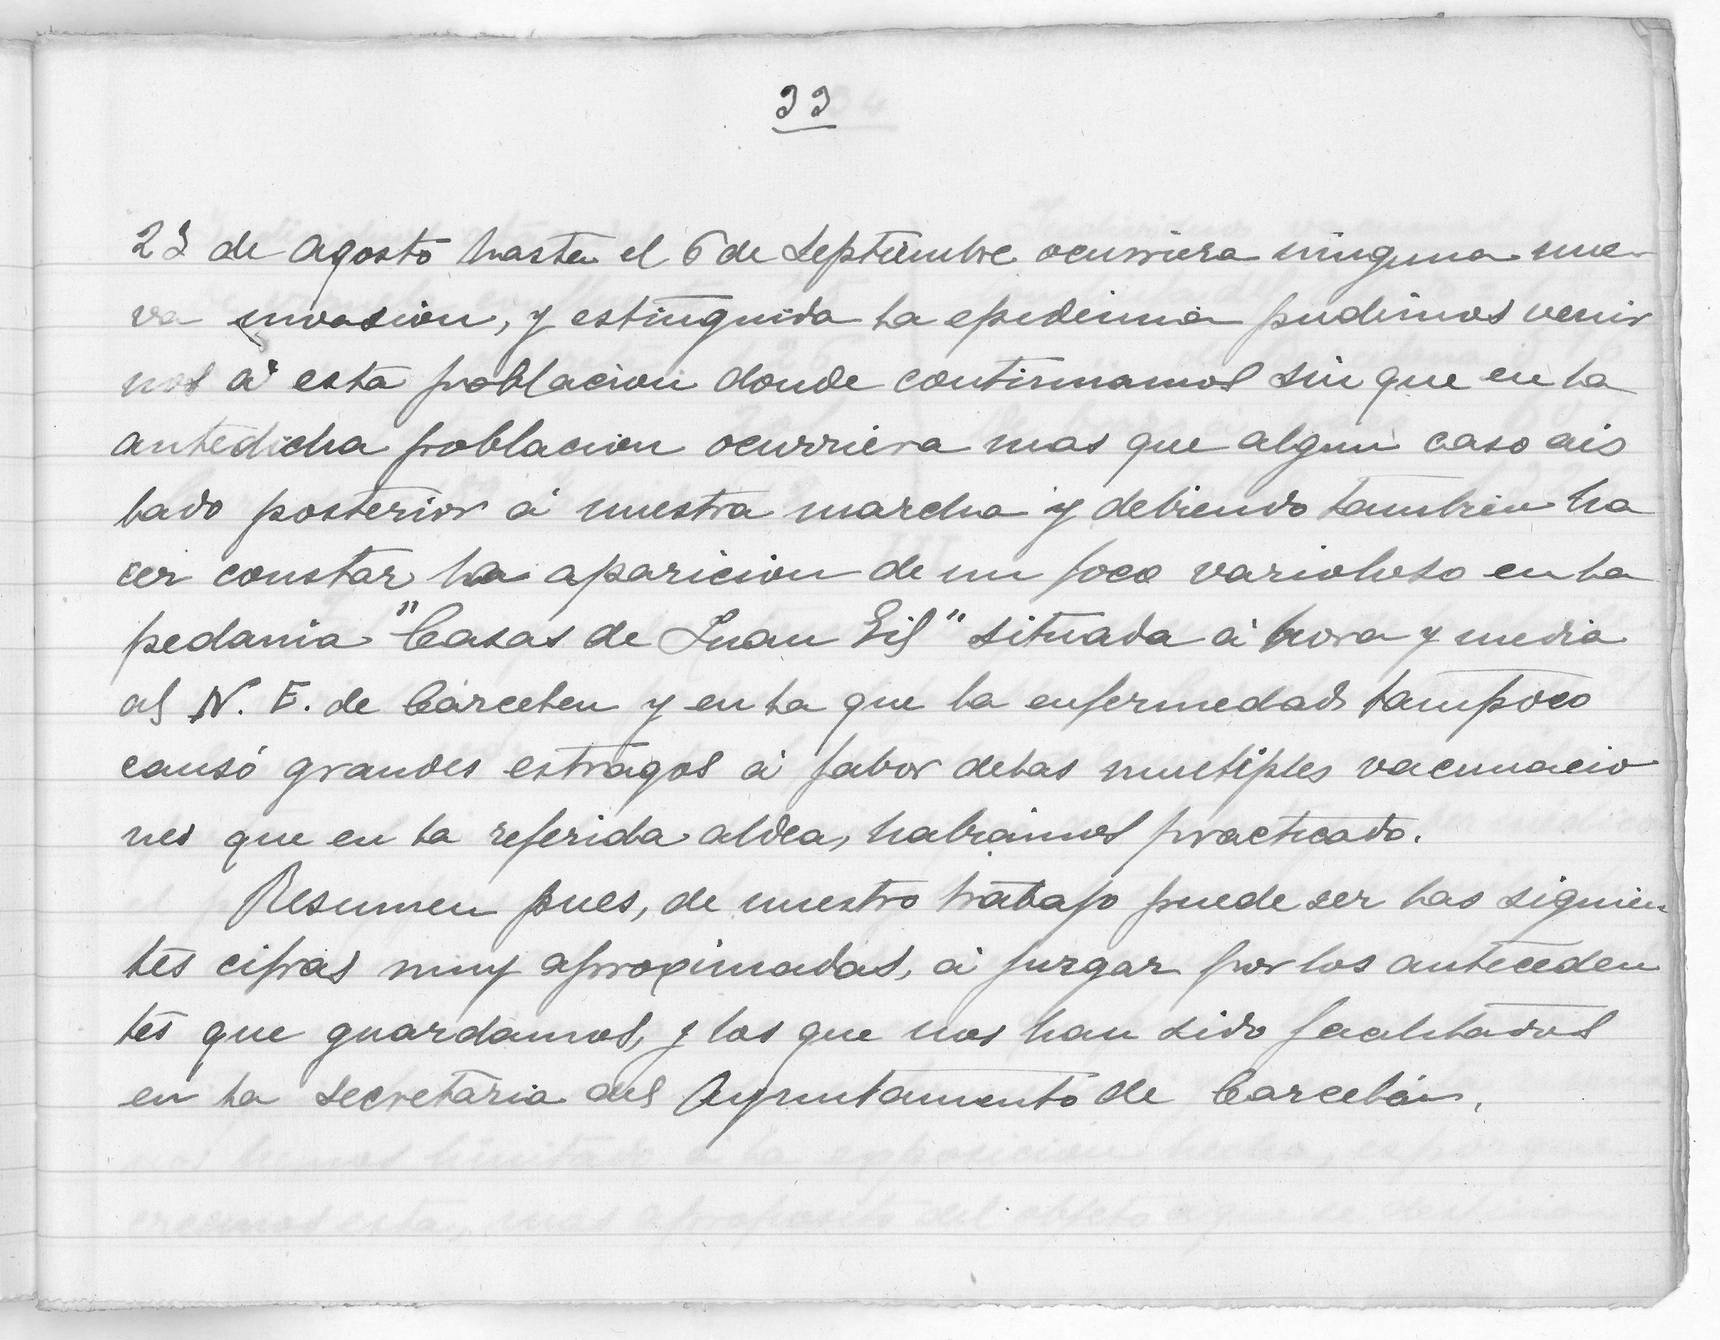 33
23 de Agosto hasta el 6 de Septiembre ocurriera ninguna nue-
va invasion, y estinguida la epidemia pudimos venir
nos á esta poblacion donde continuamos sin que en la
antedicha poblacion ocurriera mas que algun caso ais
lado posterior á nuestra marcha y debiendo tambien ha
cer constar la aparicion de un foco varioloso en la
pedania "Casas de Juan Gil" situada á hora y media
al N. E. de Cárcelen y en la que la enfermedad tampoco
causó grandes estragos á fabor delas multiples vacunacio
nes que en la referida aldea, habiamos practicado.
Resumen pues, de nuestro trabajo puede ser las siguien
tes cifras muy aproximadas, á juzgar por los anteceden
tes que guardamos, y los que nos han sido facilitados
en la secretaria del Ayuntamiento de Carcelén.